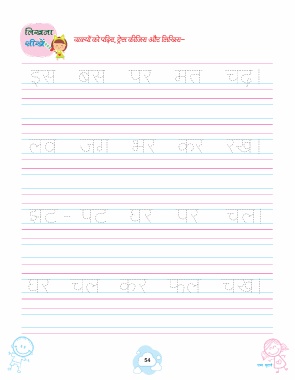 लिखना
सीखें
वाक्यों को पढ़िए, ट्रेस कीजिए और लिखिए–
इस बस पर मत चढ़।
लव जग भर कर रख।
झट - पट घर पर चल।
घर चल कर फल चख।
54